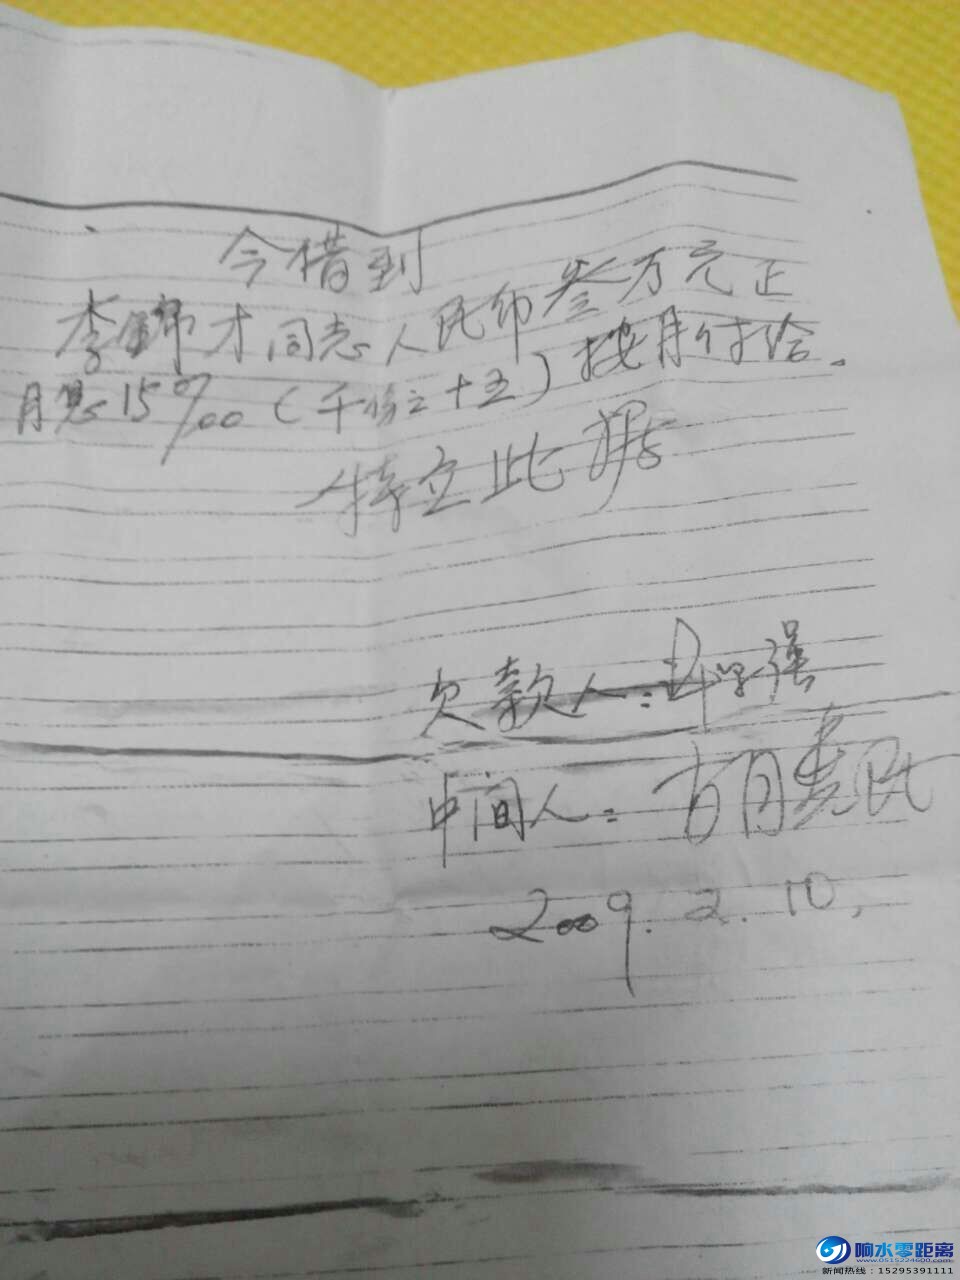 今借到
李锦才同志人民币叁万元正
月息15‰(千份之十五)按月付给。
特立此据
欠款人:学强
中间人:胡
2009.2.10.
响水零距离
www.0515224600.com
新闻热线:15295391111